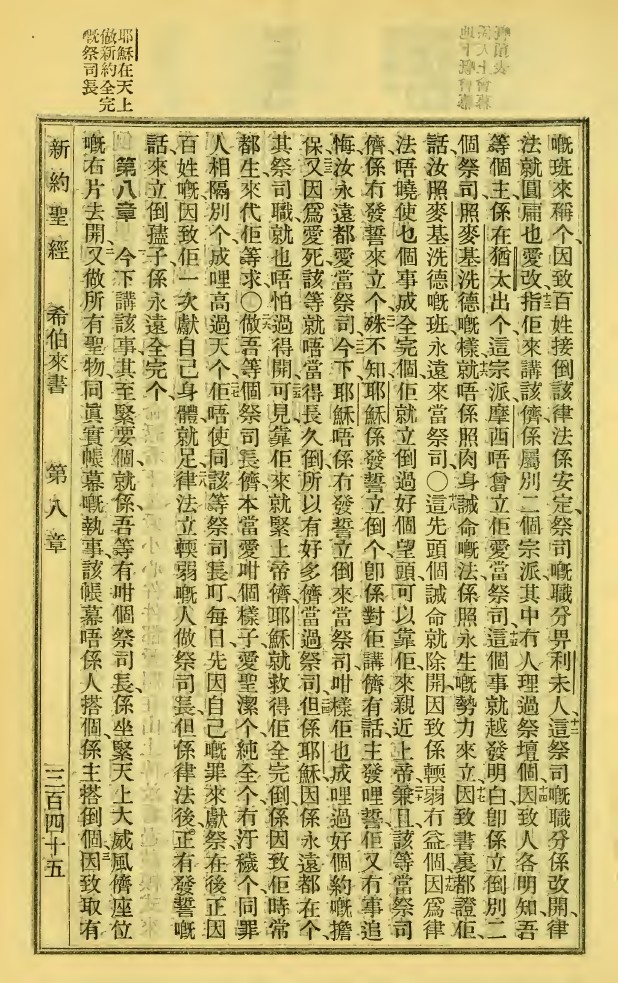 耶穌在天上
做新約全完
嘅祭司長
嘅班來稱个因致百姓接倒該律法係安定祭司嘅職分畀利未人十二這祭司嘅職分係改開律
法就圓扁也愛改十三指佢來講該儕係屬別二個宗派其中冇人理過祭壇個十四因致人各明知吾
等個主係在猶太出个這宗派摩西唔曾立佢愛當祭司十五這個事就越發明白卽係立倒別二
個祭司照麥基洗德嘅樣十六就唔係照肉身誡命嘅法係照永生嘅勢力來立十七因致書裏都證佢
話汝照麥基洗德嘅班永遠來當祭司〇十八這先頭個誡命就除開因致係輭弱冇益個十九因爲律
法唔曉使乜個事成全完個佢就立倒過好個望頭可以靠佢來親近上帝二十兼且該等當祭司
儕係冇發誓來立个二一殊不知耶穌係發誓立倒个卽係對佢講儕有話主發哩誓佢又冇事追
悔汝永遠都愛當祭司二二今下耶穌唔係冇發誓立倒來當祭司咁樣佢也成哩過好個約嘅擔
保二三又因爲愛死該等就唔當得長久倒所以有好多儕當過祭司二四但係耶穌因係永遠都在个
其祭司職就也唔怕過得開二五可見靠佢來就緊上帝儕耶穌就救得佢全完倒係因致佢時常
都生來代佢等求〇二六做吾等個祭司長儕本當愛咁個樣子愛聖潔个純全个冇汙穢个同罪
人相隔別个成哩高過天个二七佢唔使同該等祭司長叮每日先因自己嘅罪來獻祭在後正因
百姓嘅因致佢一次獻自己身體就足二八律法立輭弱嘅人做祭司長但係律法後正有發誓嘅
話來立倒孻子係永遠全完个
第八章 今下講該事其至緊要個就係吾等有咁個祭司長係坐緊天上大威風儕座位
嘅右片去開二又做所有聖物同眞實帳幕嘅執事該帳幕唔係人搭個係主搭倒個三因致取有
新約聖經 希伯來書 第八章 三百四十五